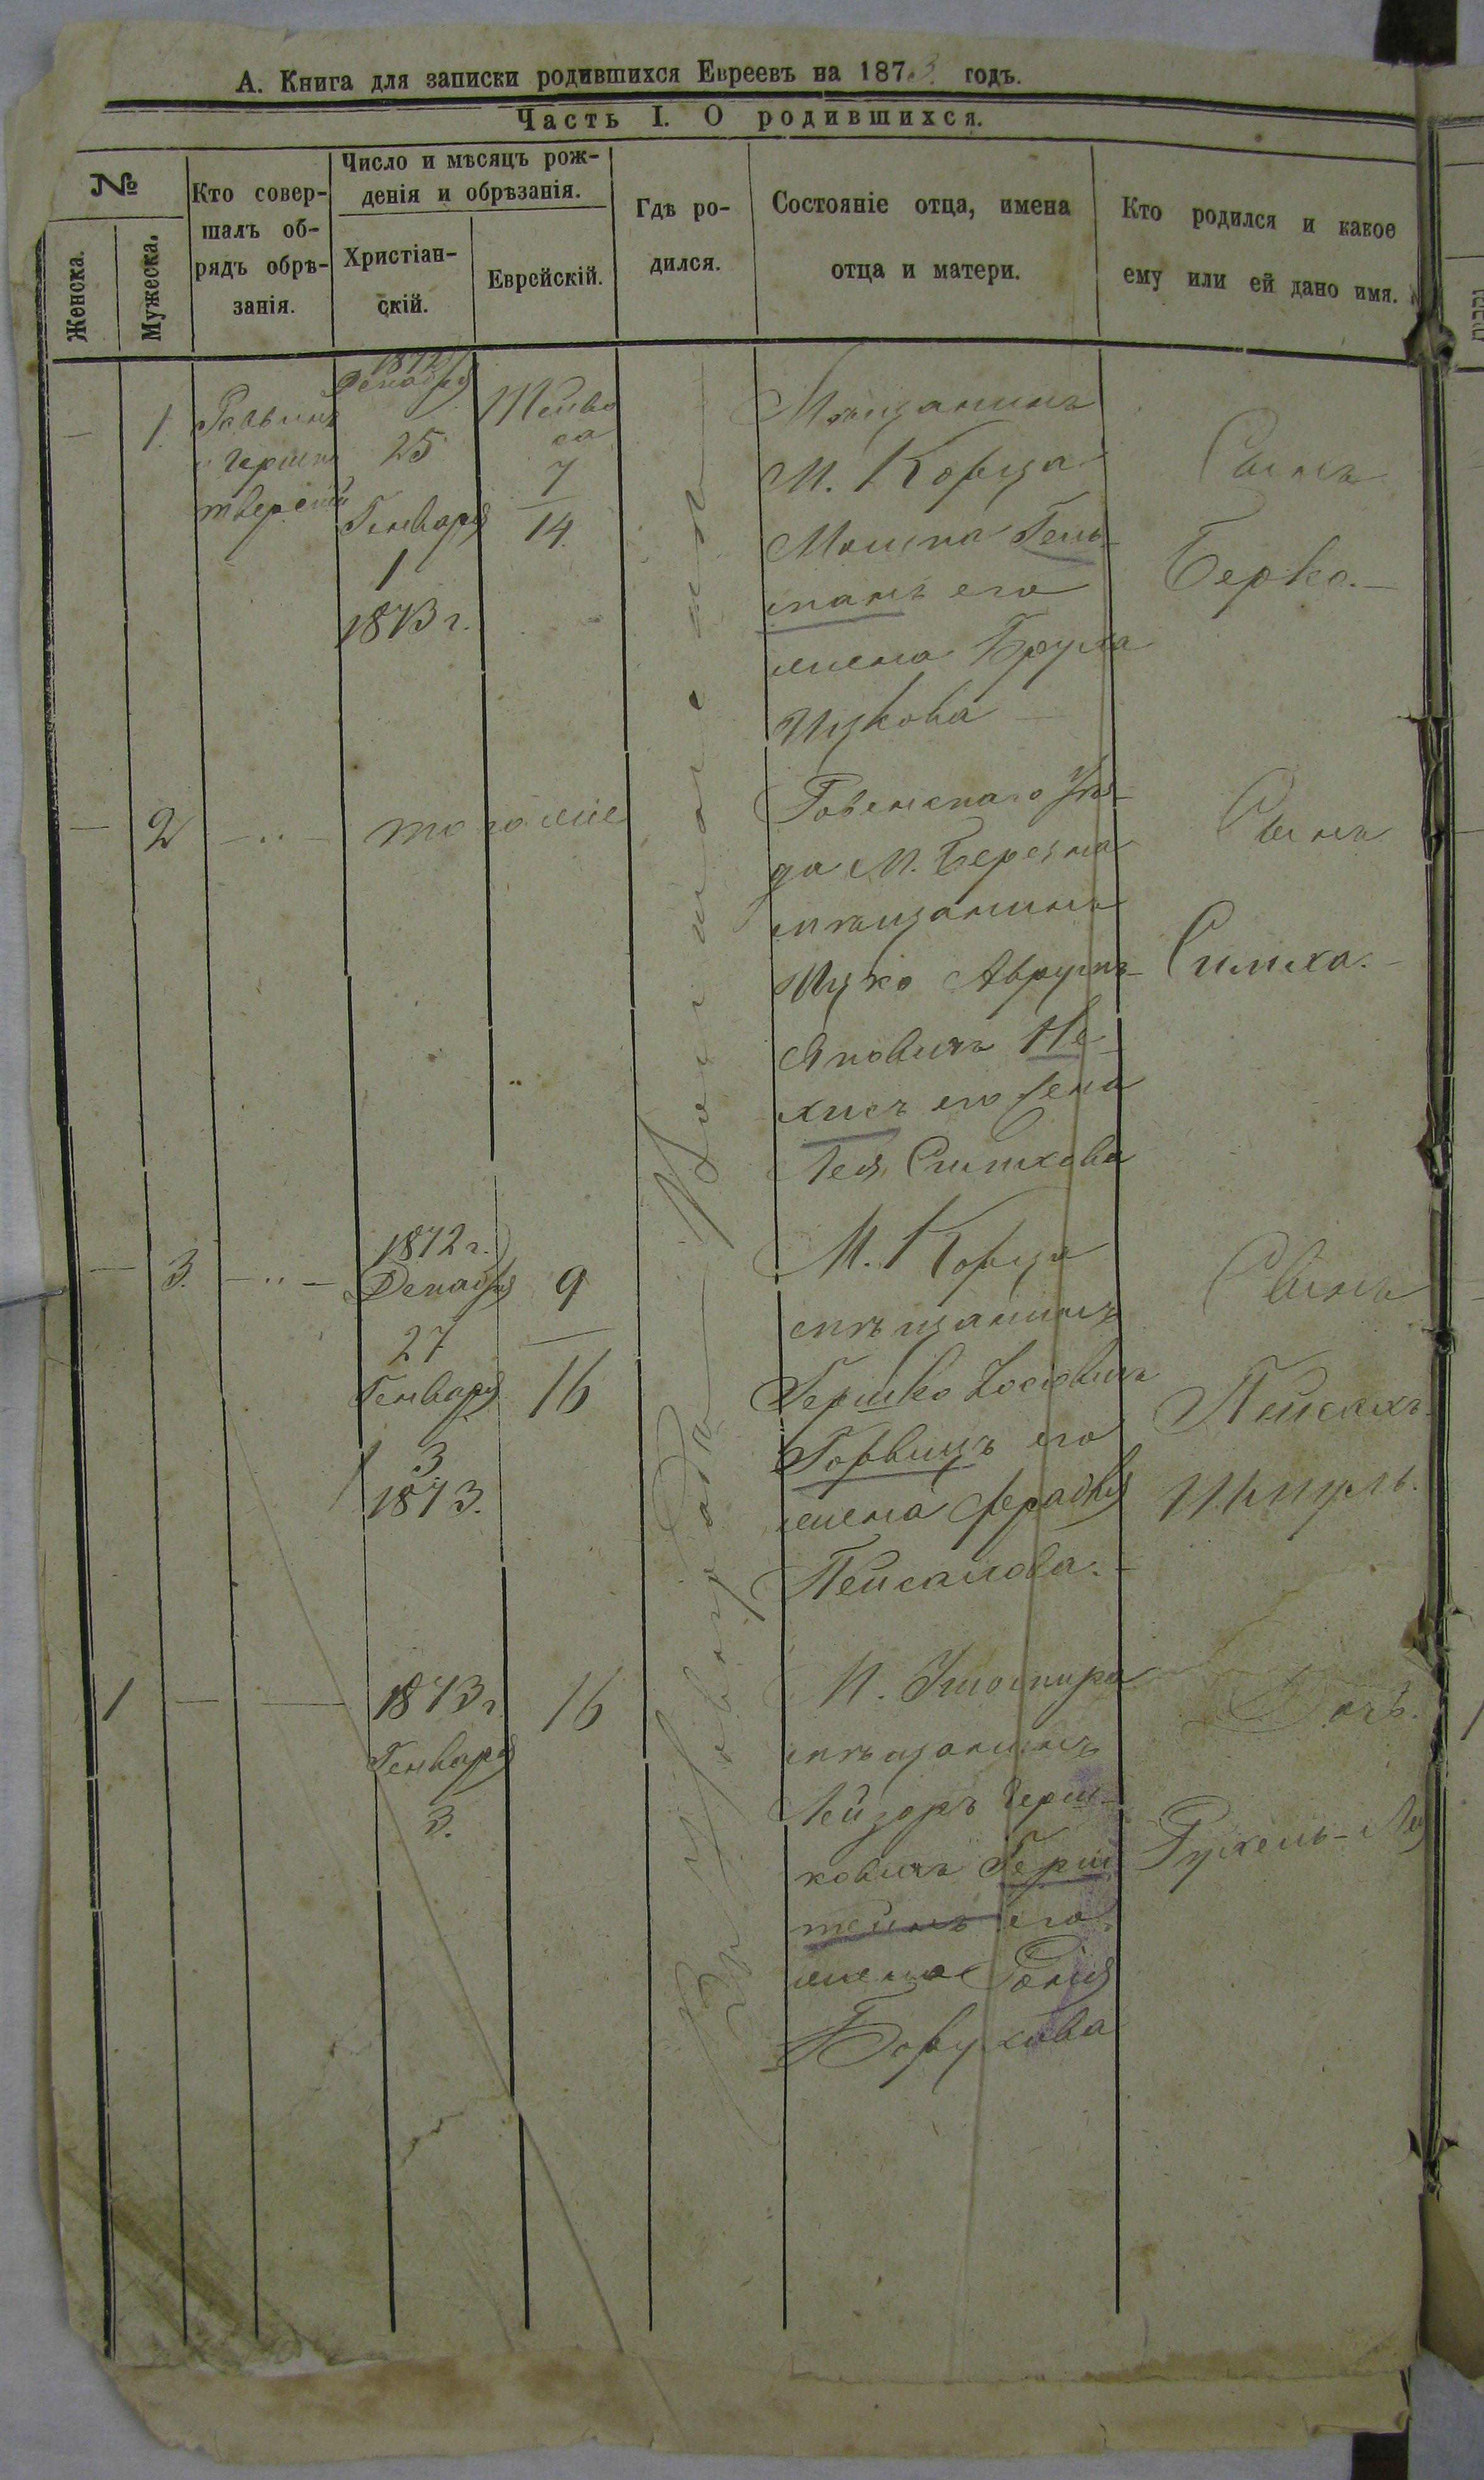 А. Книга для записки родившихся Евреевъ на 1873 годъ.
Часть I. О родившихся.
№
Женска.
Мужеска.
Кто совер-
шалъ об-
рядъ обрѣ-
занія.
Число и мѣсяцъ рож-
денія и обрѣзанія.
Христіан-
скій.
Еврейскій.
Гдѣ ро-
дился.
Состояніе отца, имена
отца и матери.
Кто родился и какое
ему или ей дано имя.
Въ Новградѣ Волынскѣ
— 1.
Раввинъ
Гершко
тверскій
1872
Декабря
25
Генваря
1
1873 г.
Тейве
са
7
14.
Мѣщанинъ
М. Корца
Мошко Гель-
манъ его
жена Бруха
Ицкова —
Сынъ
Берко. —
— 2 — .. —
того же
Ровенскаго Уѣз-
да М. Березна
мѣщанинъ
Ицко Аврумъ-
Яковичъ Не-
хисъ его жена
Лея Симхова
Сынъ
Симха. —
— 3. — .. —
1872 г.
Декабря
27
Генваря
3
1873.
9
16
М. Корца
мѣщанинъ
Гершко Іосіовичъ
Горвицъ его
жена Фрадля
Пейсахова. —
Сынъ
Пейсахъ-
Шмуль.
1 — —
1873 г.
Генваря
3.
16
М. Устьпира
мѣщанинъ
Лейзоръ Герш-
ковичъ Герш
тейнъ его
жена Роня
Борухова
Дочь.
Рухель-Лея